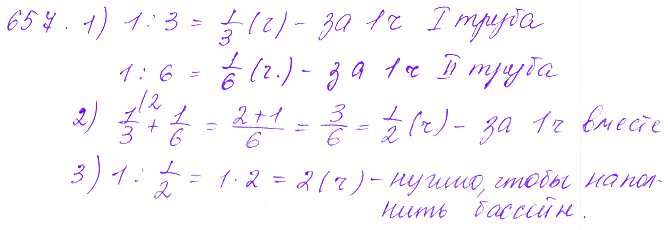 657. 1) 1 : 3 = 1/3 (ч) - за 1 ч I труба
1 : 6 = 1/6 (ч.) - за 1 ч II труба
2) 1/3 \2 + 1/6 = 2+1/6 = 3/6 = 1/2 (ч) - за 1 ч вместе
3) 1 : 1/2 = 1 · 2 = 2 (ч) - нужно, чтобы напол-
нить бассейн.